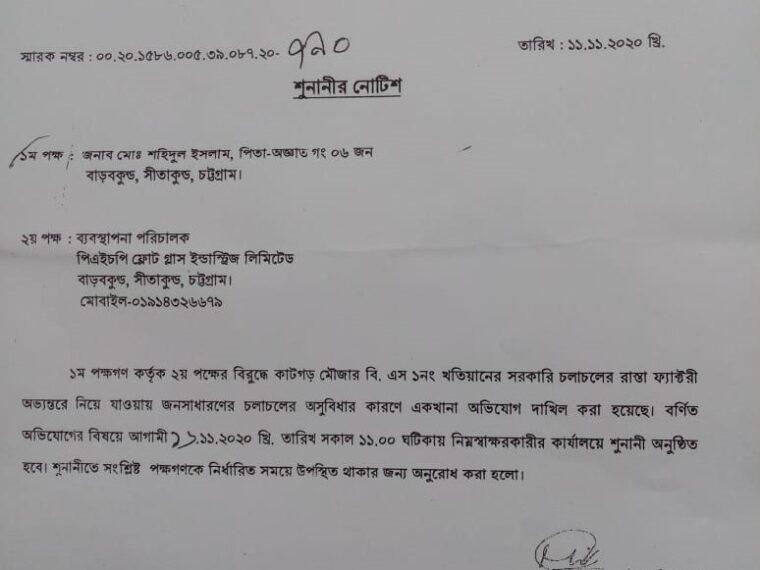 স্মারক নম্বর : ০০.২০.১৫৮৬.০০৫.৩৯.০৮৭.২০- ৭৯০ তারিখ : ১১.১১.২০২০ খ্রি.
শুনানীর নোটিশ
১ম পক্ষ : জনাব মোঃ শহিদুল ইসলাম, পিতা-অজ্ঞাত গং ০৬ জন
বাড়বকুন্ড, সীতাকুন্ড, চট্টগ্রাম।
২য় পক্ষ : ব্যবস্থাপনা পরিচালক
পিএইচপি ফ্লোট গ্লাস ইন্ডাস্ট্রিজ লিমিটেড
বাড়বকুন্ড, সীতাকুন্ড, চট্টগ্রাম।
মোবাইল-০১৯১৪৩২৬৬৭৯
১ম পক্ষগণ কর্তৃক ২য় পক্ষের বিরুদ্ধে কাটগড় মৌজার বি. এস ১নং খতিয়ানের সরকারি চলাচলের রাস্তা ফ্যাক্টরী
অভ্যন্তরে নিয়ে যাওয়ায় জনসাধারণের চলাচলের অসুবিধার কারণে একখানা অভিযোগ দাখিল করা হয়েছে। বর্ণিত
অভিযোগের বিষয়ে আগামী .১১.২০২০ খ্রি. তারিখ সকাল ১১.০০ ঘটিকায় নিম্নস্বাক্ষরকারীর কার্যালয়ে শুনানী অনুষ্ঠিত
হবে। শুনানীতে সংশ্লিষ্ট পক্ষগণকে নির্ধারিত সময়ে উপস্থিত থাকার জন্য অনুরোধ করা হলো।